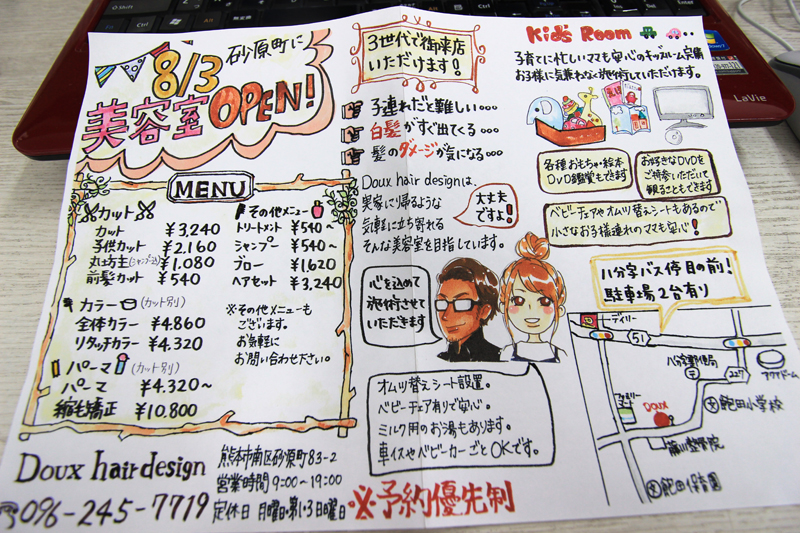 8/3 砂原町に
美容室 OPEN!
MENU
カット
カット ¥3,240
子供カット ¥2,160
丸坊主(シャンプー込) ¥1,080
前髪カット ¥540
カラー (カット別)
全体カラー ¥4,860
リタッチカラー ¥4,320
パーマ (カット別)
パーマ ¥4,320~
縮毛矯正 ¥10,800
その他メニュー
トリートメント ¥540~
シャンプー ¥540~
ブロー ¥1,620
ヘアセット ¥3,240
※その他メニューも
ございます。
お気軽に
お問い合わせ下さい。
Doux hair design
096-245-7719
熊本市南区砂原町83-2
営業時間 9:00~19:00
定休日 月曜日・第1・3日曜日
※予約優先制
3世代で御来店
いただけます!
子連れだと難しい・・・
白髪がすぐ出てくる・・・
髪のダメージが気になる・・・
Doux hair designは、
実家に帰るような
気軽に立ち寄れる
そんな美容室を目指しています。
大丈夫
ですよ!
心を込めて
施術させて
いただきます
オムツ替えシート設置。
ベビーチェア有りで安心。
ミルク用のお湯もあります。
車イスやベビーカーごとOKです。
Kid's Room
子育てに忙しいママも安心のキッズルーム完備
お子様に気兼ねなく施術していただけます。
各種おもちゃ・絵本
DVD鑑賞もできます
お好きなDVDを
ご持参いただいて
観ることもできます
ベビーチェアやオムツ替えシートもあるので
小さなお子様連れのママも安心!
八分字バス停目の前!
駐車場2台有り
デイリー
51
八分字郵便局
227
アクアドーム
ファミリーマート
Doux
飽田小学校
藤川整骨院
飽田保育園
LaVie
Windows 7